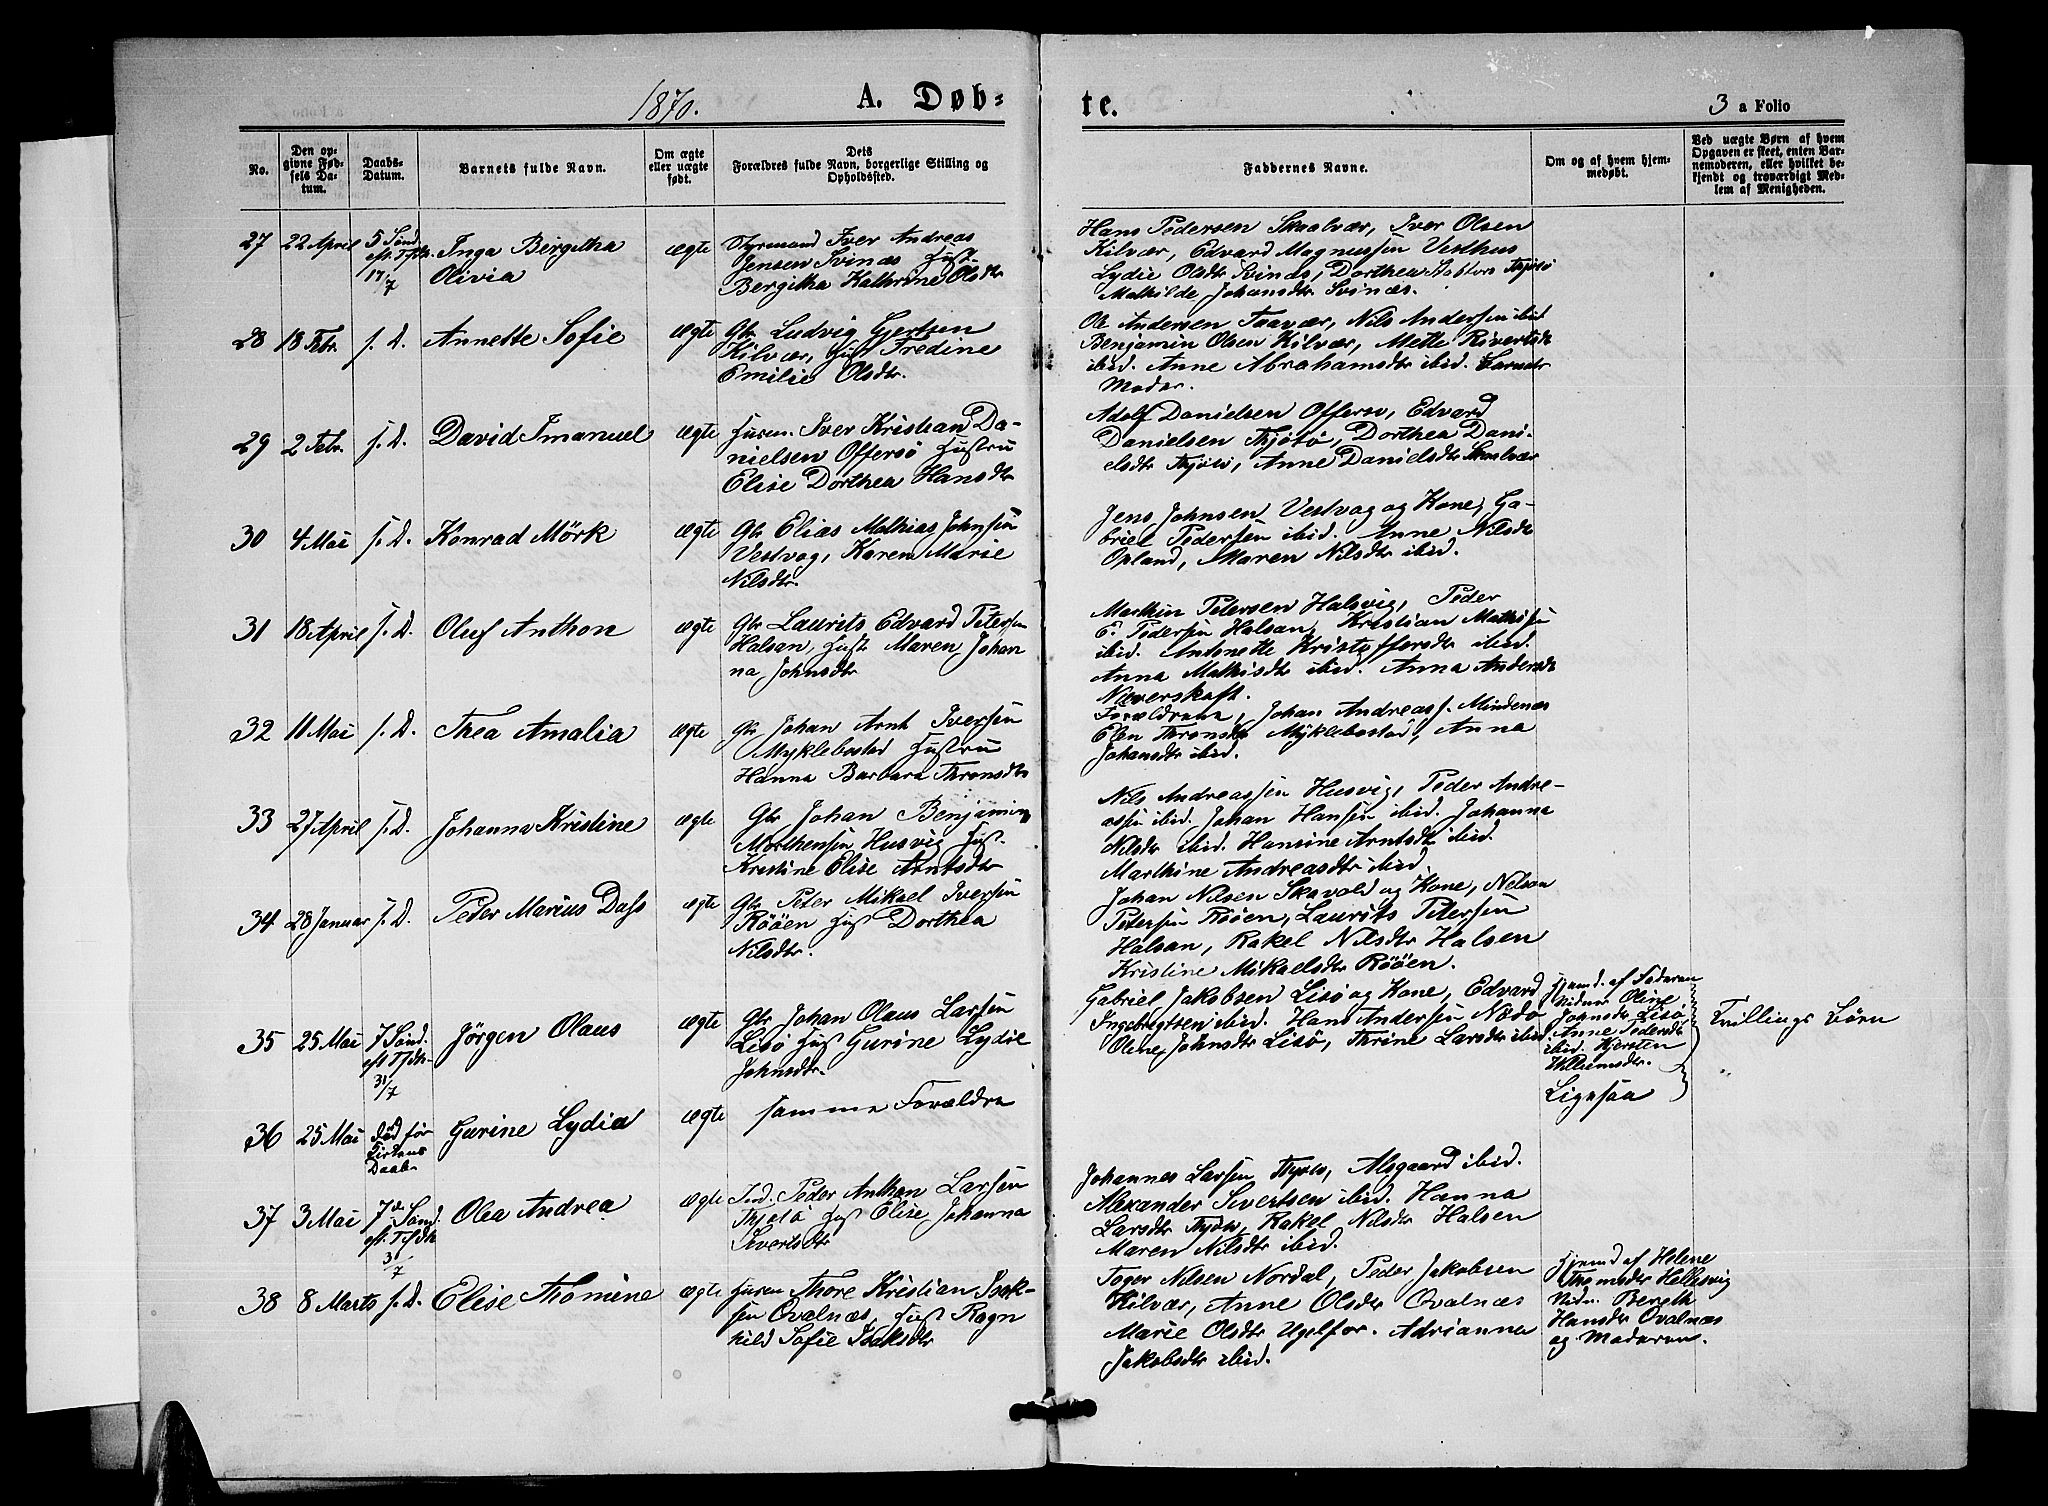 1870.
A. Døb=
te.
3 a Folio
No.
Den op=
givne Fød=
sels Da=
tum.
Daabs=
Datum.
Barnets fulde Navn.
Om ægte
eller uægte
født.
Dets
Forældres fulde Navn, borgerlige Stilling og
Opholdssted.
Faddernes Navne.
Om og af hvem hjem=
medøbt.
Ved uægte Børn af hvem
Opgaven er skeet, enten Bar=
nemoderen, eller hvilket be=
kjendt og troværdigt Med=
lem af Menigheden.
27 22 April 5 Sønd. eft. Trfdh. 17/7
Inga Bergitha
Olivia
ægte
Styrmand Iver Andreas
Jensen Svinæs Hust.
Bergitha Kathrine Olsdtr
Hans Pedersen Skaalvær, Iver Olsen
Kilvær, Edvard Magnussen Vesthus
Lydie Olsdtr Svinæs, Dorthea Tjøtø
Mathilde Johansdtr Svinæs.
28 18 Febr. s. D. Annette Sofie ægte
Gbr Ludvig Gjertsen
Kilvær, Hust Fredine
Emilie Olsdtr.
Ole Andersen Faavær, Nils Andersen ibid
Benjamin Olsen Kilvær, Mette Sivertsdtr
ibid. Anne Abrahamsdtr ibid. Barnets
Moder.
29 2 Febr. s. D. David Imanuel ægte
Husm. Iver Kristian Da-
nielsen Offersø Hustru
Elise Dorthea Hansdtr
Adolf Danielsen Offersø, Edvard
Danielsen Thjøtø, Dorthea Dani-
elsdtr Thjøtø, Anne Danielsdtr Skaalvær
30 4 Mai s. D. Konrad Mörk ægte
Gbr Elias Mathias Johnsen
Vestvog, Karen Marie
Nilsdtr.
Jens Johnsen Vestvog og Kone, Ga-
briel Pedersen ibid. Anne Nilsdtr
Opland, Maren Nilsdtr ibid.
31 18 April s. D. Oluf Anthon ægte
Gbr Laurits Edvard Petersen
Halsan, Hust Maren Johan
na Johnsdtr
Marthin Petersen Halsvig, Peder
E. Pedersen Halsan, Kristian Mathisen
ibid. Antonette Kristoffersdtr ibid.
Anna Mathisdtr ibid. Anna Andersdtr
Næverskaft.
32 11 Mai s. D. Thea Amalia ægte
Gbr Johan Arnt Iversen
Myklebostad Hustru
Hanna Barbara Thronsdtr
Forældrene, Johan Andreass. Mindenæs
Elen Thronsdtr Myklebostad, Anna
Johansdtr ibid.
33 27 April s. D. Johanna Kristine ægte
Gbr Johan Benjamin
Morthensen Husvig Hust.
Kristine Elise Arntsdtr
Nils Andreassen Husvig, Peder Andre-
assen ibid. Johan Hansen ibid. Johanna
Nilsdtr ibid. Hansine Arntsdtr ibid.
Marthine Andreasdtr ibid.
34 28 Januar s. D. Peder Marius Dass ægte
Gbr Peter Mikael Iversen
Rööen Hust Dorthea
Nilsdtr.
Johan Nilsen Skavold og Kone, Nelson
Petersen Rööen, Laurits Petersen
Halsan, Rakel Nilsdtr Halsen
Kristine Mikaelsdtr Rööen.
35 25 Mai 7 Sønd. eft Tfdh. 31/7
Jörgen Olaus ægte
Gbr Johan Olaus Larsen
Lisö Hust Gurine Lydie
Johnsdtr.
Gabriel Jakobsen Lisö og Kone, Edvard
Ingebrigtsen ibid. Hans Andersen Nödö
Oline Johnsdtr Lisö, Thrine Larsdtr ibid.
Hjemd. af Faderen
Vidner Oline
Johnsdtr Lisö
Anne Pedersdtr
ibid. Kjersten
Willumsdtr.
Tvillings Börn
36 25 Mai död før Kirkens Daab
Gurine Lydia ægte
samme Forældre
Ligesaa
37 3 Mai 7de Sønd. eft. Tfdh 31/7
Olea Andrea ægte
Ind. Peder Anthon Larsen
Thjøtö Hust Elise Johanna
Sivertsdtr
Johannes Larsen Thjøtø, Alsgaard ibid.
Alexander Sivertsen ibid. Hanna
Larsdtr Thjøtø, Rakel Nilsdtr Halsen
Maren Nilsdtr ibid.
38 8 Marts s. D. Elise Thomine ægte
Husm Thore Kristian Isak-
sen Ovalnæs, Hust Ragn
hild Sofie Isaksdtr
Toger Nilsen Nordal, Peder Jakobsen
Kilvær, Anne Olsdtr Ovalnæs
Marie Olsdtr Ugelfor. Adrianna
Jakobsdtr ibid.
Hjemd af Helene
Thomsdtr Hellesvig
Vidn. Bereth
Hansdtr Ovalnæs
og Moderen.